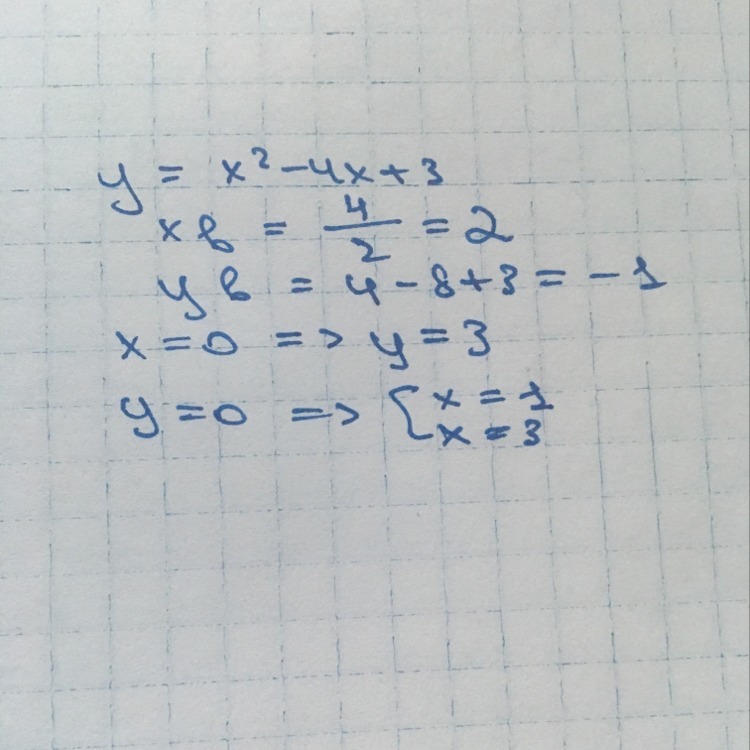 y = x² - 4x + 3
xв = 4/2 = 2
yв = 4 - 8 + 3 = -1
x = 0 => y = 3
y = 0 => [ x = 1
x = 3